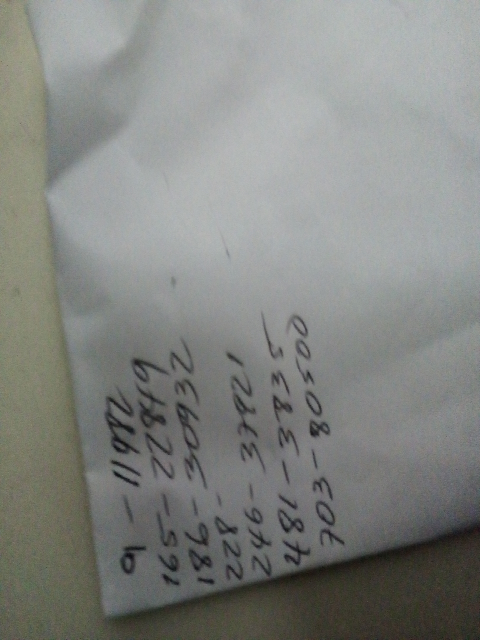 6 - 11982
165 - 22849
186 - 30932
228 -
246 - 37821
481 - 3835
703 - 80500